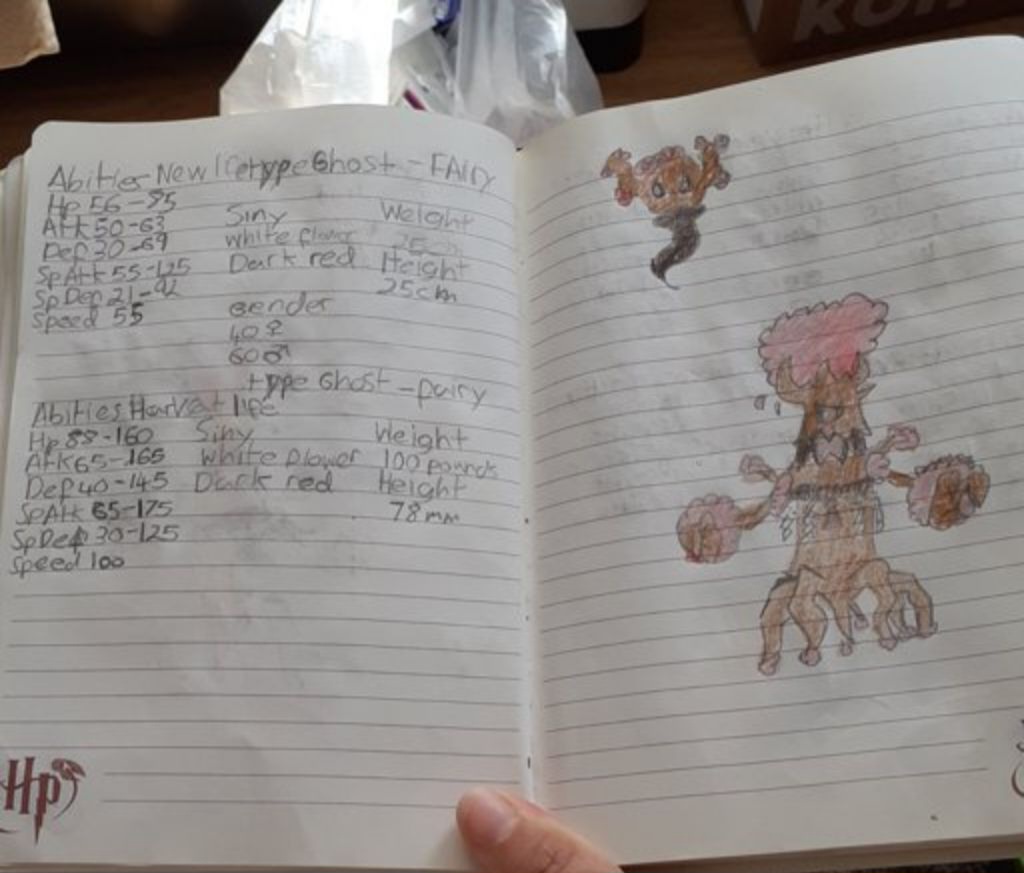 Abities New life type Ghost - FAiry
Hp 56-85
Atk 50-63
Def 30-69
SpAtk 55-125
SpDef 21-92
Speed 55
Siny
white flower
Dark red
Weight
25cm
Height
25cm
Gender
40♀
60♂
type Ghost - fairy
Abities Harvest life
Hp 88-160
Atk 65-165
Def 40-145
SpAtk 65-175
SpDef 30-125
Speed 100
Siny
White flower
Dark red
Weight
100 pounds
Height
78mm
Hp